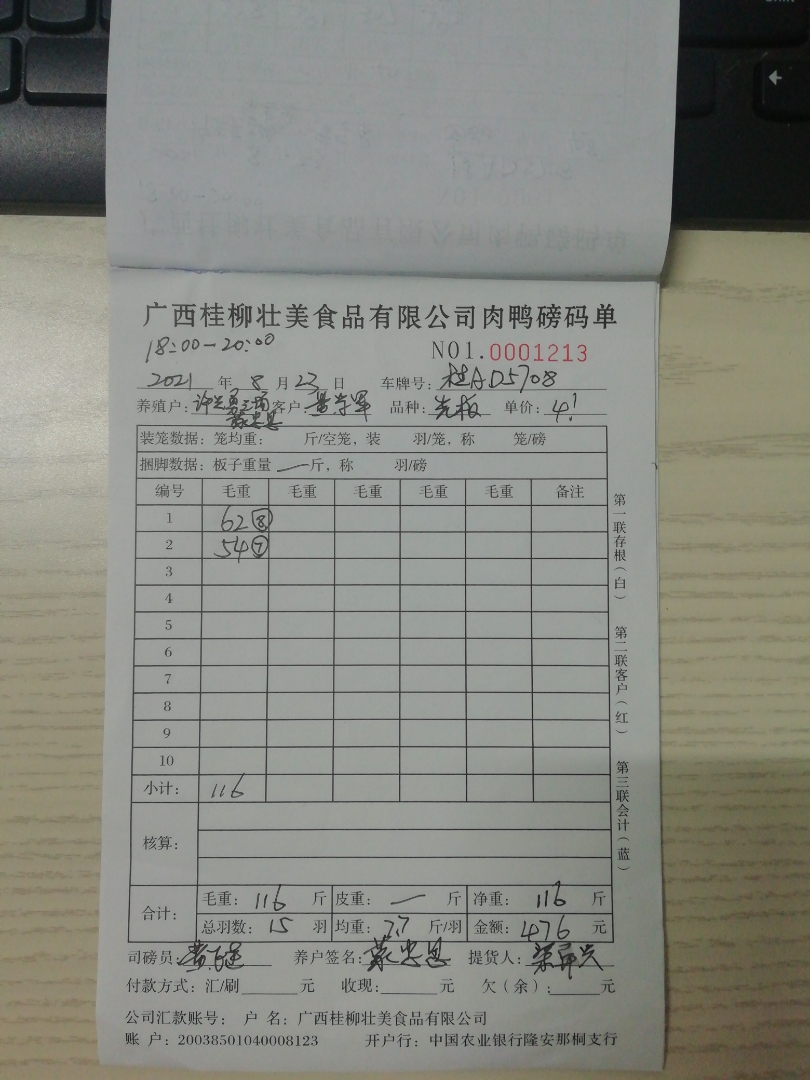 广西桂柳壮美食品有限公司肉鸭磅码单
18:00-20:00
NO1.0001213
2021 年 8 月 23 日 车牌号: 桂AD5708
养殖户: 客户: 品种: 单价: 4.1
装笼数据: 笼均重: 斤/空笼, 装 羽/笼, 称 笼/磅
捆脚数据: 板子重量 — 斤, 称 羽/磅
编号 毛重 毛重 毛重 毛重 毛重 备注
1 62⑧
2 54⑦
3
4
5
6
7
8
9
10
小计: 116
核算:
合计: 毛重: 116 斤 皮重: — 斤 净重: 116 斤
总羽数: 15 羽 均重: 7.7 斤/羽 金额: 476 元
司磅员: 养户签名: 蒙忠恩 提货人:
付款方式: 汇/刷 元 收现: 元 欠(余): 元
公司汇款账号: 户 名: 广西桂柳壮美食品有限公司
账 户: 20038501040008123 开户行: 中国农业银行隆安那桐支行
第一联存根(白)
第二联客户(红)
第三联会计(蓝)